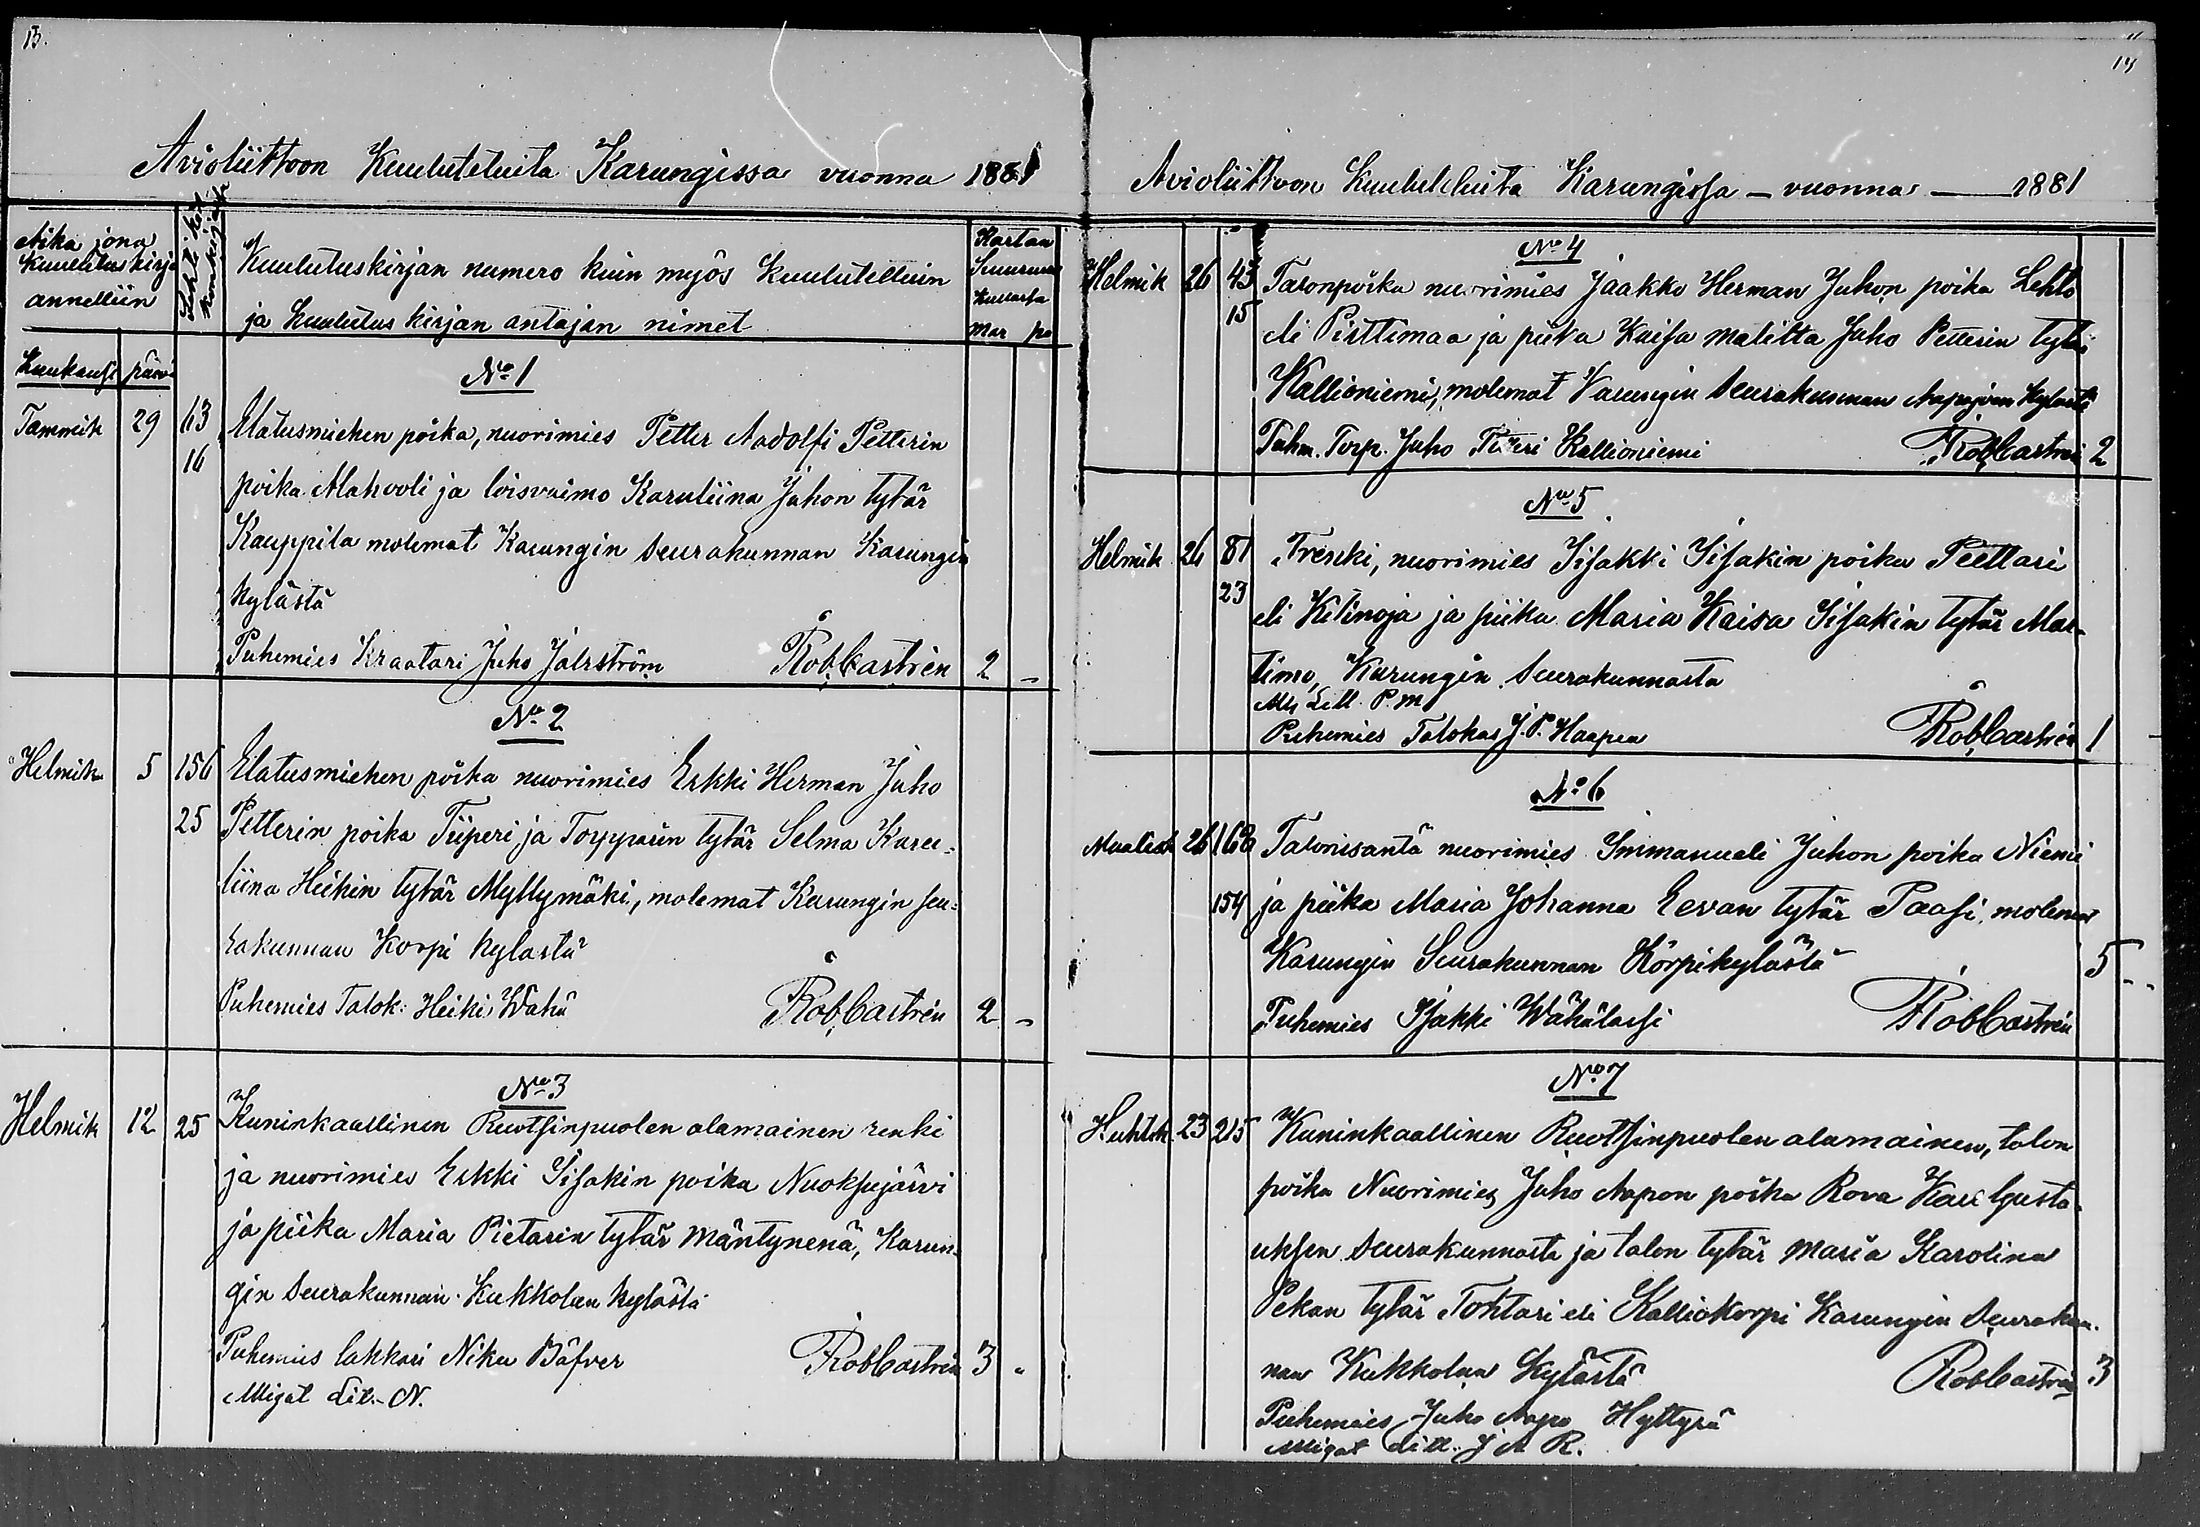 13.
Avioliittoon Kuuluteluita Karungissa vuonna 1881
Aika jona
Kuulutuskirja
annettiin
Kuulutuskirjan numero kuin myös Kuulutettuin
ja Kuulutus kirjan antajan nimet
Kartan
Suuruus
Mar pe
Kuukausi päivä
No 1
Tammik 29 63 Elatusmiehen poika, nuorimies Petter Aadolfi Petterin
16
poika Alahooli ja loisvaimo Karuliina Juhon tytär
Kauppila molemat Karungin Seurakunnan Karungin
kylästä
Puhemies Kraatari Juho Jalrström RobCastrén 2 -
No 2
Helmik 5 156 Elatusmiehen poika nuorimies Erkki Herman Juho
25 Petterin poika Tiiperi ja Torpparin tytär Selma Karu-
liina Heikin tytär Myllymäki, molemat Karungin seu-
rakunnan Korpi kylästä
Puhemies Talok: Heiki Wähä RobCastrén 2 -
No 3
Helmik 12 25 Kuninkaallinen Ruotsinpuolen alamainen renki
ja nuorimies Erkki Iisakin poika Nuoksujärvi
ja piika Maria Pietarin tytär Mäntynenä, Karun-
gin Seurakunnan Kukkolan kylästä
Puhemies lakkari Niku Bäfver RobCastrén 3 "
Migat Lit. N.
14
Avioliittoon Kuuluteluita Karungissa - vuonna - 1881
No 4
Helmik 26 43 Talonpoika nuorimies Jaakko Herman Juhon poika Lehto
15 eli Pirttimaa ja piika Kaisa Matilta Juho Petterin tytär
Kallioniemi, molemat Karungin Seurakunnan Aapajoen kylästä
Puhm. Torp. Juho Petteri Kallioniemi RobCastrén 2
No 5
Helmik 26 81 Trenki, nuorimies Iisakki Iisakin poika Peettari
23 eli Kitinoja ja piika Maria Kaisa Iisakin tytär Mar-
timo, Karungin Seurakunnasta
Litt. P. M
Puhemies Talokas J. P. Haapea RobCastrén 1
No 6
Maalisk 26 168 Talonisäntä nuorimies Immanueli Juhon poika Niemi
154 ja piika Maria Johanna Eevan tytär Paasi, molemat
Karungin Seurakunnan Korpikylästä 5 - -
Puhemies Isakki Wähälassi RobCastrén
No 7
Huhtik 23 215 Kuninkaallinen Ruotsinpuolen alamainen, talon
poika Nuorimies Juho Aapon poika Rova Karl Gusta-
uksen Seurakunnasta ja talon tytär Maria Karolina
Pekan tytär Tohtari eli Kalliokorpi Karungin Seurakun-
nan Kukkolan Kylästä RobCastrén 3
Puhemies Juho Aapo Hyttyrä
Migat Litt. J A R.